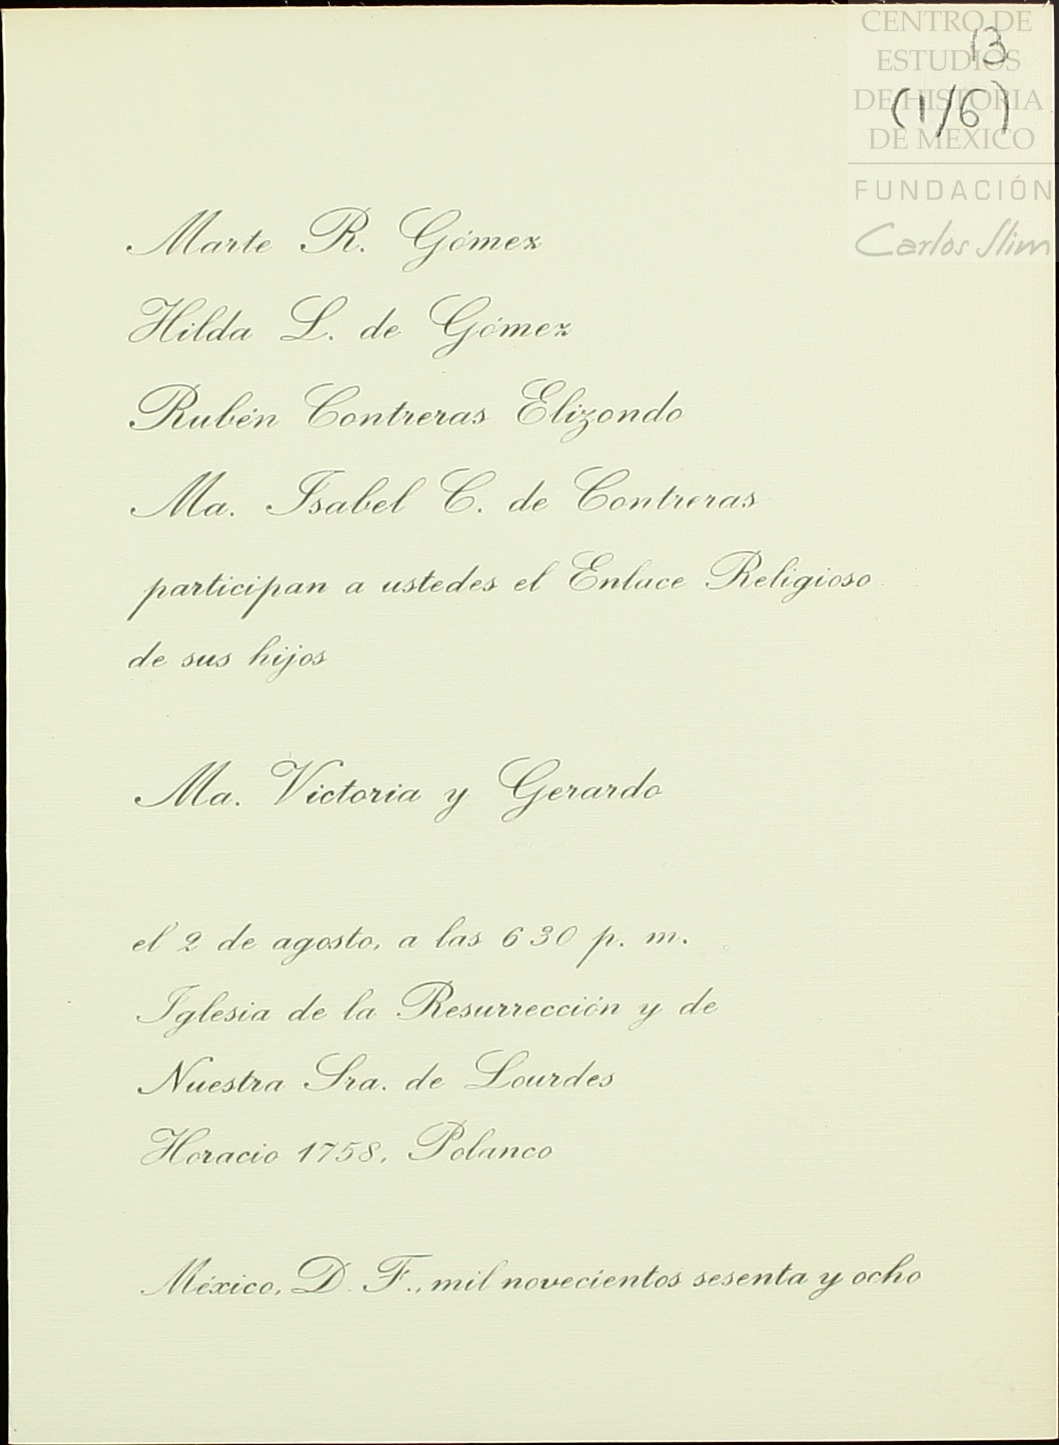 CENTRO DE
ESTUDIOS
DE HISTORIA
DE MEXICO
FUNDACIÓN
Carlos Slim
13
(1/6)
Marte R. Gómez
Hilda L. de Gómez
Rubén Contreras Elizondo
Ma. Isabel C. de Contreras
participan a ustedes el Enlace Religioso
de sus hijos
Ma. Victoria y Gerardo
el 2 de agosto, a las 6 30 p. m.
Iglesia de la Resurrección y de
Nuestra Sra. de Lourdes
Horacio 1758, Polanco
México, D. F., mil novecientos sesenta y ocho